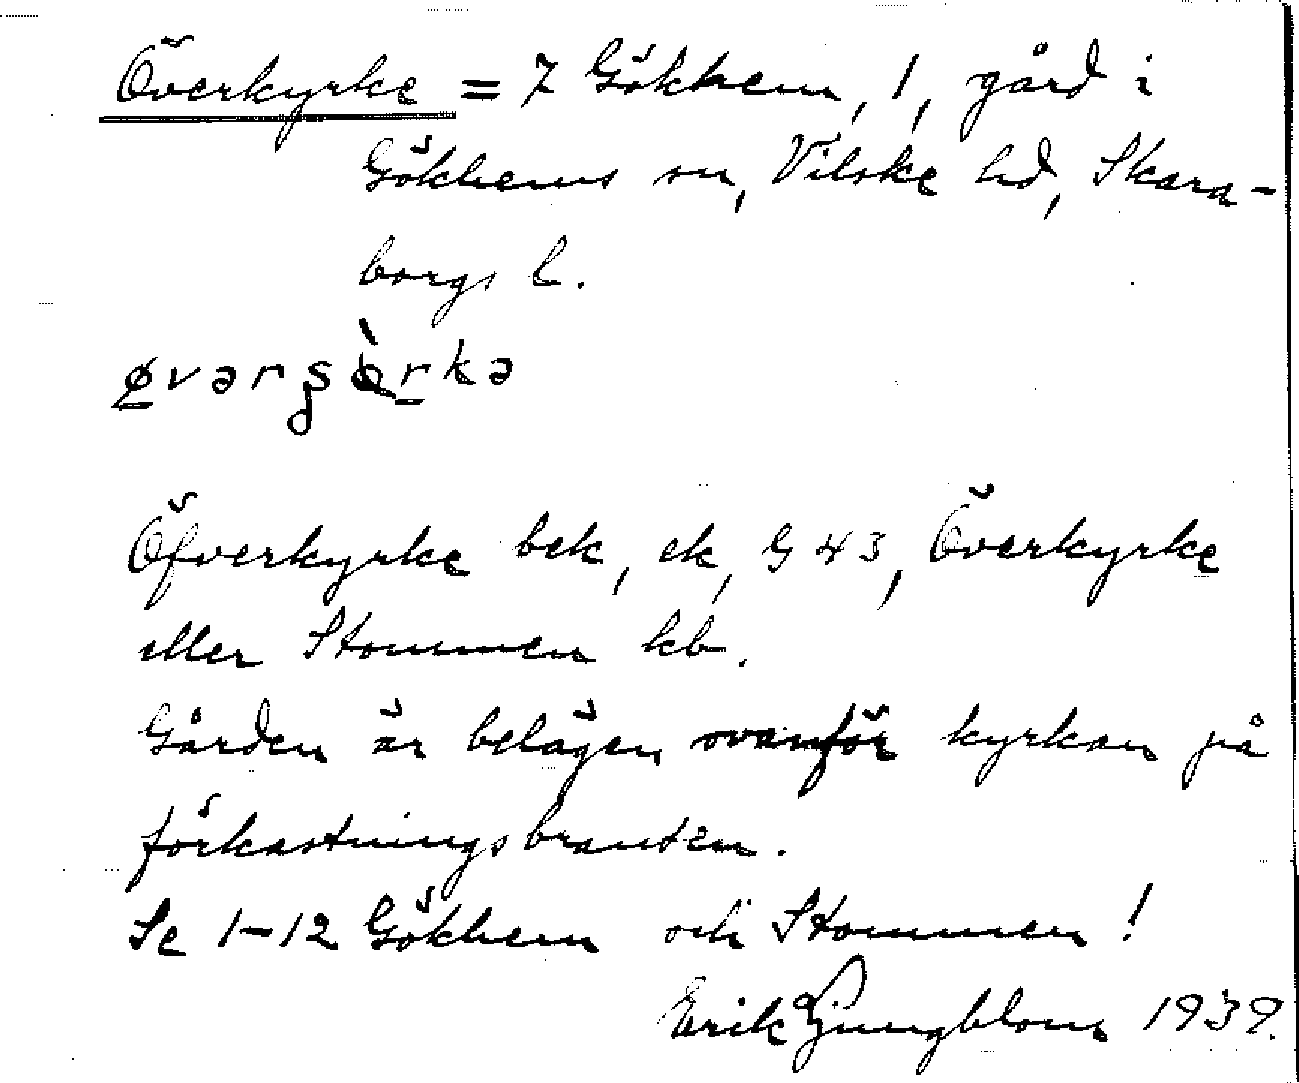 Överkyrke = 7 Gökhem, 1, gård i
Gökhems sn, Vilske hd, Skara-
borgs l.
øvərʂɵ̀rkə
Öfverkyrke bek, ek, G 43, Överkyrke
eller Stommen kb.
Gården är belägen ovanför kyrkan på
förkastningsbranten.
Se 1-12 Gökhem och Stommen!
Erik Ljungblom 1939.